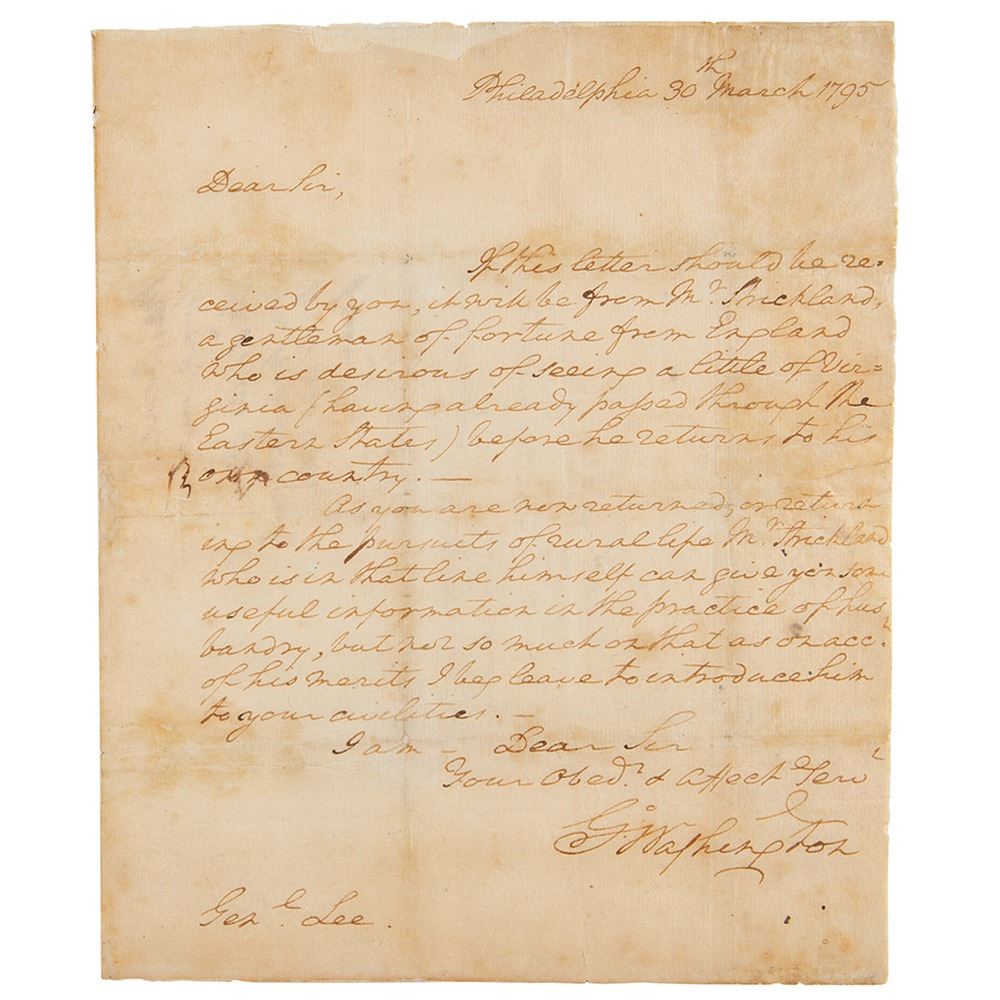 Philadelphia 30th March 1795
Dear Sir,
If this letter should be re=
ceived by you, it will be from Mr. Strickland,
a gentleman of fortune from England
who is desirous of seeing a little of Vir=
ginia (having already passed through the
Eastern States) before he returns to his
own country. —
As you are now returned, or return
ing to the pursuits of rural life Mr. Strickland
who is in that line himself can give you some
useful information in the practice of hus
bandry, but not so much on that as on acct.
of his merits I beg leave to introduce him
to your civilities. —
I am — Dear Sir
Your Obedt. & Affect Servt
Go: Washington
Genl. Lee.